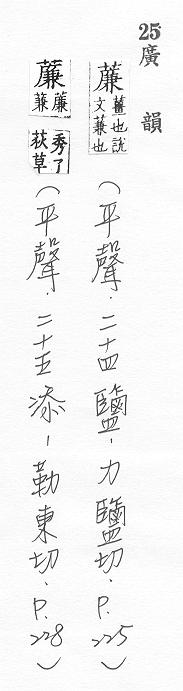 25 廣韻
薕 薑也說文蒹也（平聲．二十四鹽－力鹽切．P.225）
薕 薕蒹秀了荻草（平聲．二十五添－勒東切．P.228）